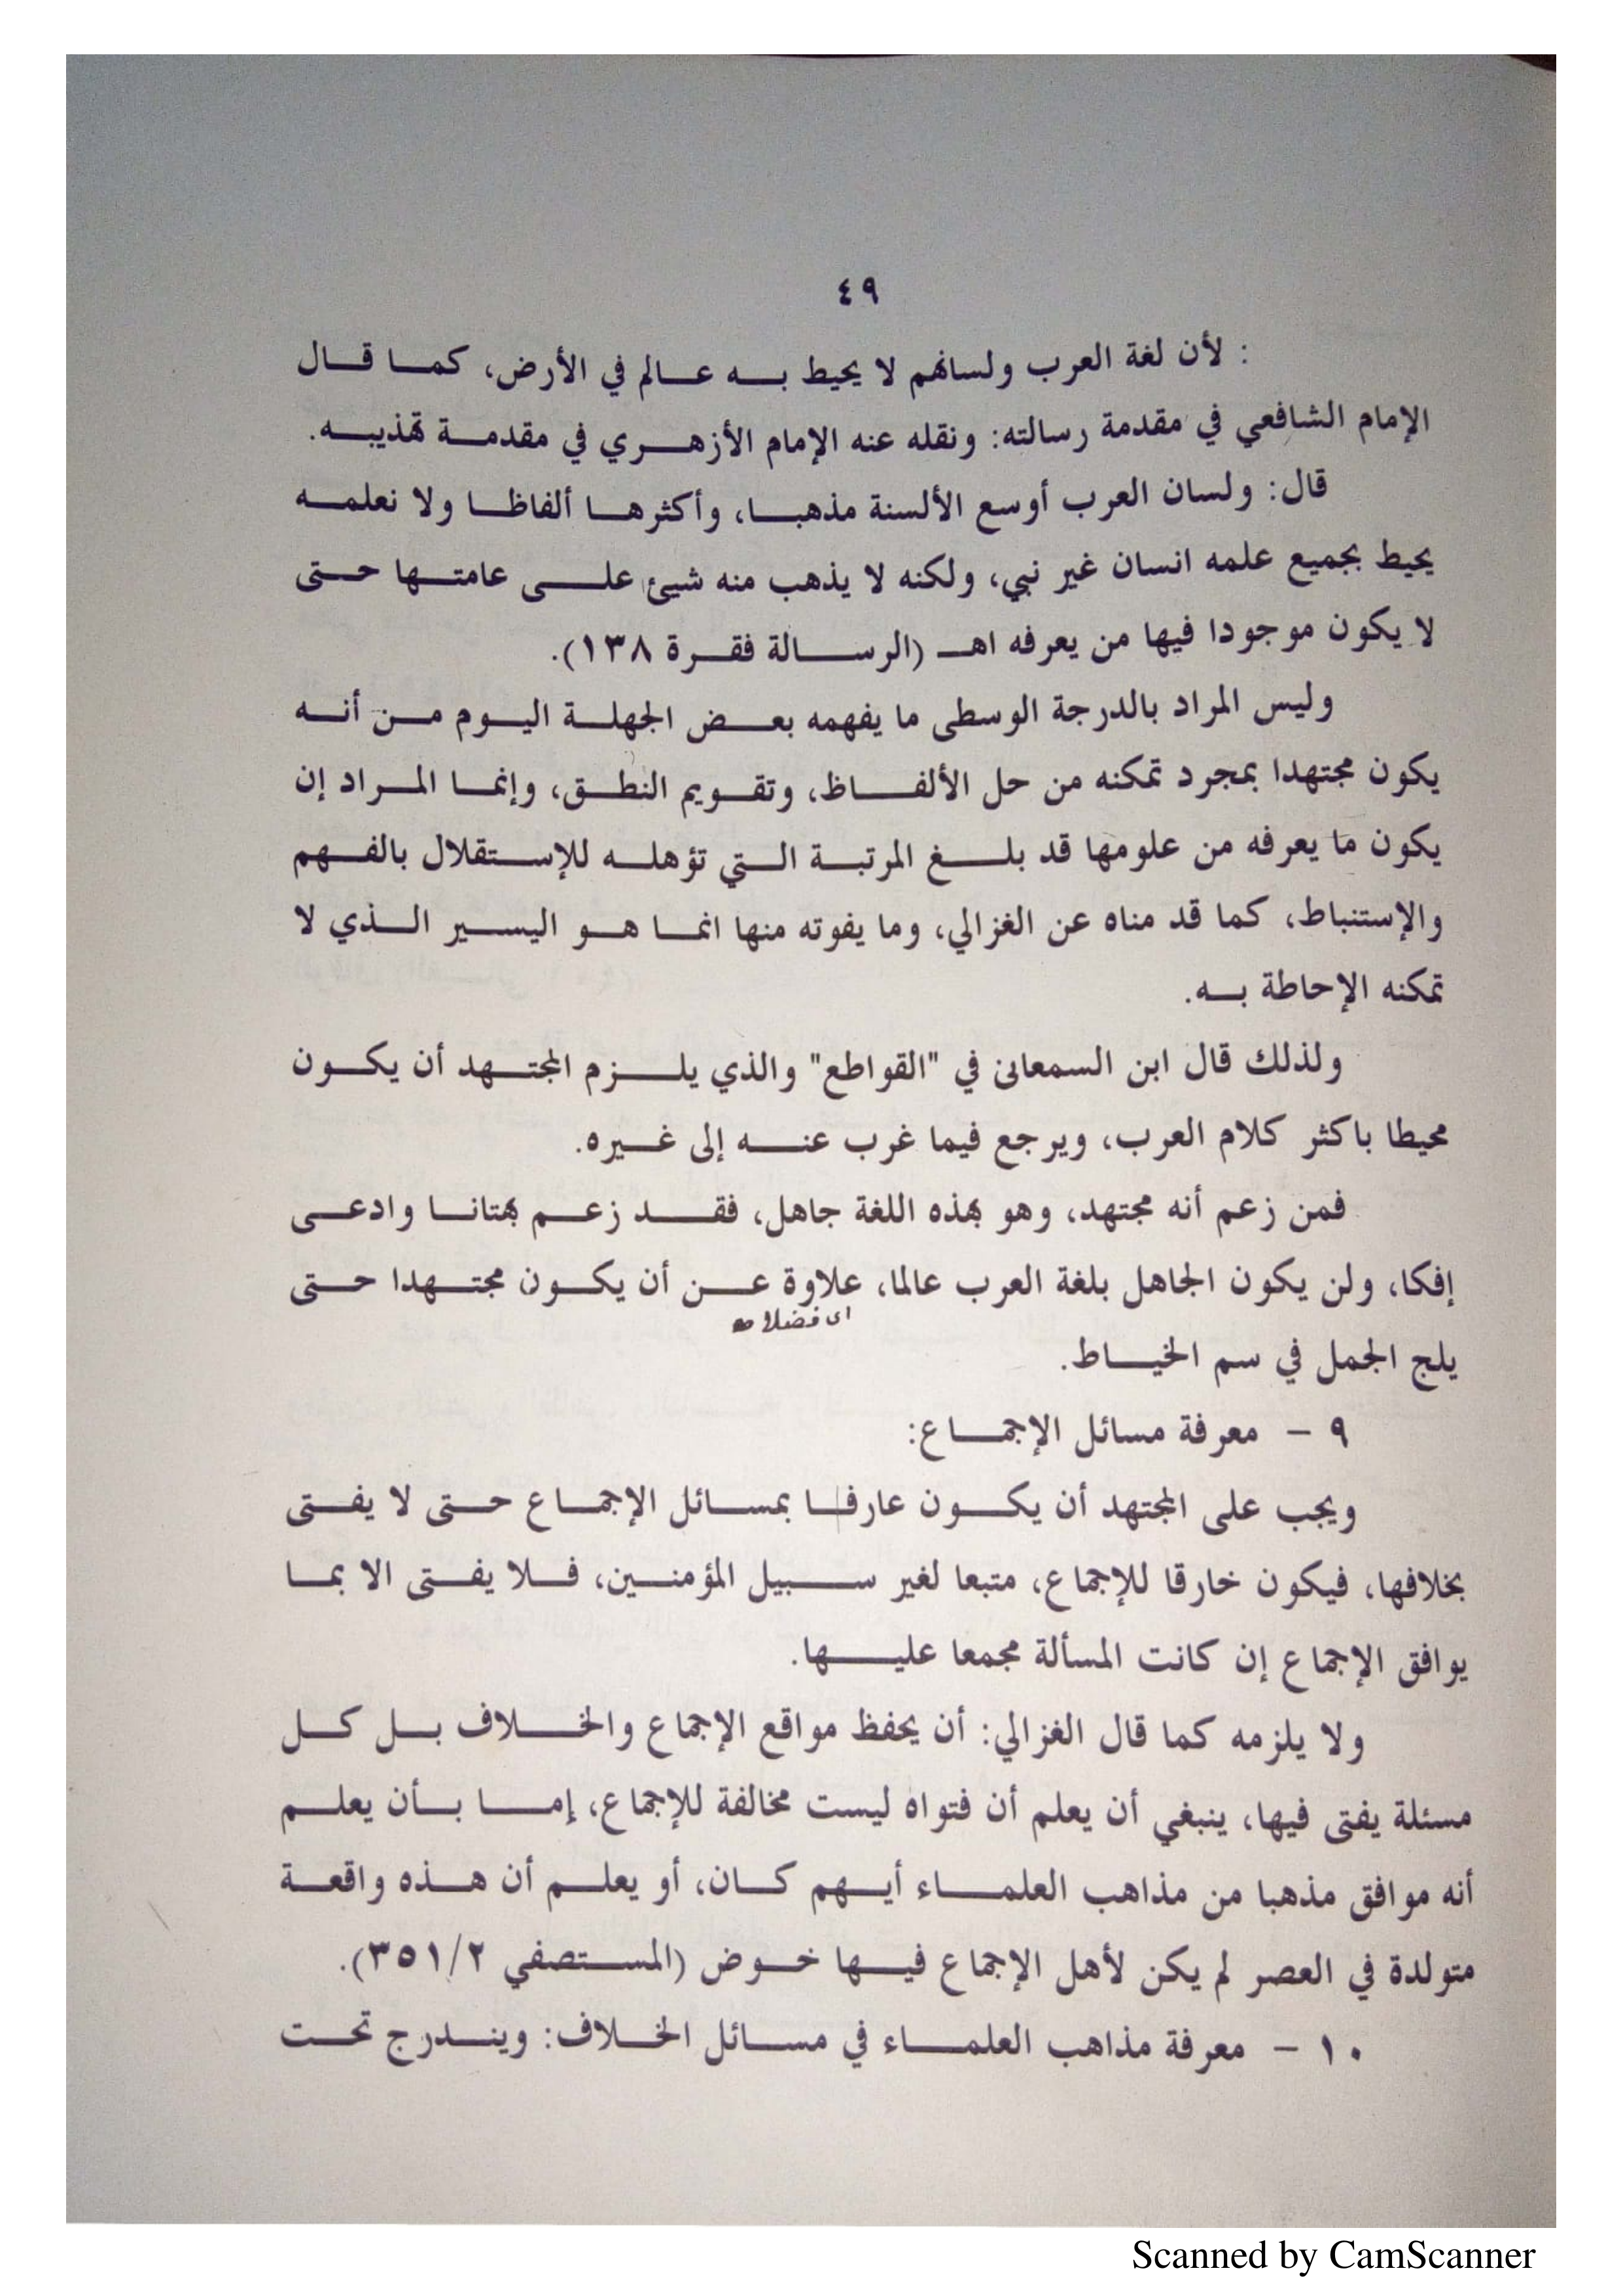 ٤٩
: لأن لغة العرب ولسانهم لا يحيط بـه عـالم في الأرض، كمـا قـال
الإمام الشافعي في مقدمة رسالته: ونقله عنه الإمام الأزهـري في مقدمـة تهذيبـه.
قال: ولسان العرب أوسع الألسنة مذهبـا، وأكثرهـا ألفاظـا ولا نعلمـه
يحيط بجميع علمه انسان غير نبي، ولكنه لا يذهب منه شيئ علـى عامتـها حـتى
لا يكون موجودا فيها من يعرفه اهـ (الرسـالة فقـرة ١٣٨).
وليس المراد بالدرجة الوسطى ما يفهمه بعـض الجهلـة اليـوم مـن أنـه
يكون مجتهدا بمجرد تمكنه من حل الألفـاظ، وتقـويم النطـق، وإنمـا المـراد إن
يكون ما يعرفه من علومها قد بلـغ المرتبـة الـتي تؤهلـه للإسـتقلال بالفـهم
والإستنباط، كما قد مناه عن الغزالي، وما يفوته منها انمـا هـو اليسـير الـذي لا
تمكنه الإحاطة بـه.
ولذلك قال ابن السمعانى في "القواطع" والذي يلـزم المجتـهد أن يكـون
محيطا باكثر كلام العرب، ويرجع فيما غرب عنـه إلى غـيره.
فمن زعم أنه مجتهد، وهو بهذه اللغة جاهل، فقـد زعـم بهتانـا وادعـى
إفكا، ولن يكون الجاهل بلغة العرب عالما، علاوة عـن أن يكـون مجتـهدا حـتى
اى فضلا
يلج الجمل في سم الخيـاط.
٩ – معرفة مسائل الإجمـاع:
ويجب على المجتهد أن يكـون عارفـا بمسـائل الإجمـاع حـتى لا يفـتى
بخلافها، فيكون خارقا للإجماع، متبعا لغير سـبيل المؤمنـين، فـلا يفـتى الا بمـا
يوافق الإجماع إن كانت المسألة مجمعا عليـها.
ولا يلزمه كما قال الغزالي: أن يحفظ مواقع الإجماع والخـلاف بـل كـل
مسئلة يفتى فيها، ينبغي أن يعلم أن فتواه ليست مخالفة للإجماع، إمـا بـأن يعلـم
أنه موافق مذهبا من مذاهب العلمـاء أيـهم كـان، أو يعلـم أن هـذه واقعـة
متولدة في العصر لم يكن لأهل الإجماع فيـها خـوض (المسـتصفي ٣٥١/٢).
١٠ – معرفة مذاهب العلمـاء في مسـائل الخـلاف: وينـدرج تحـت
Scanned by CamScanner